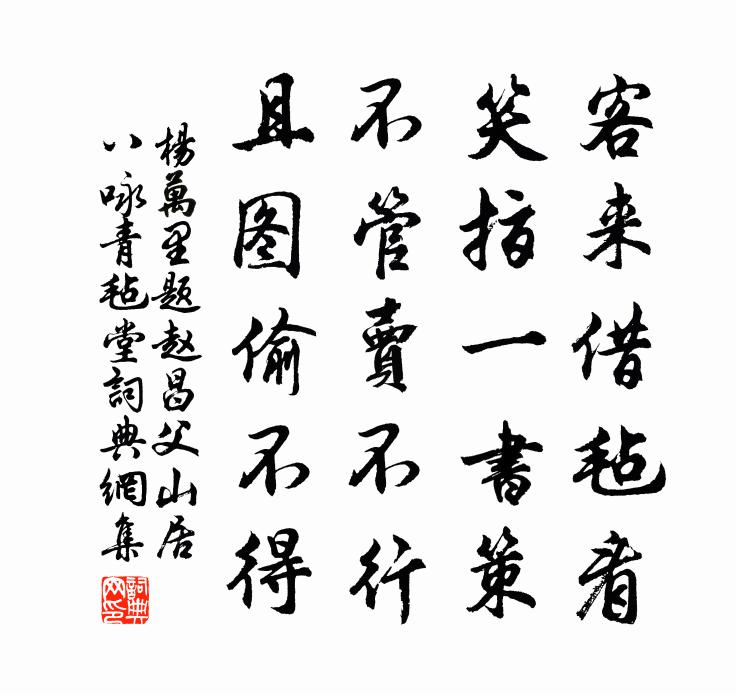 客来借毡看
笑指一書策
不管賣不行
且图偷不得
楊萬里题赵昌父山居
八咏青毡堂詞典網集
詞典网印